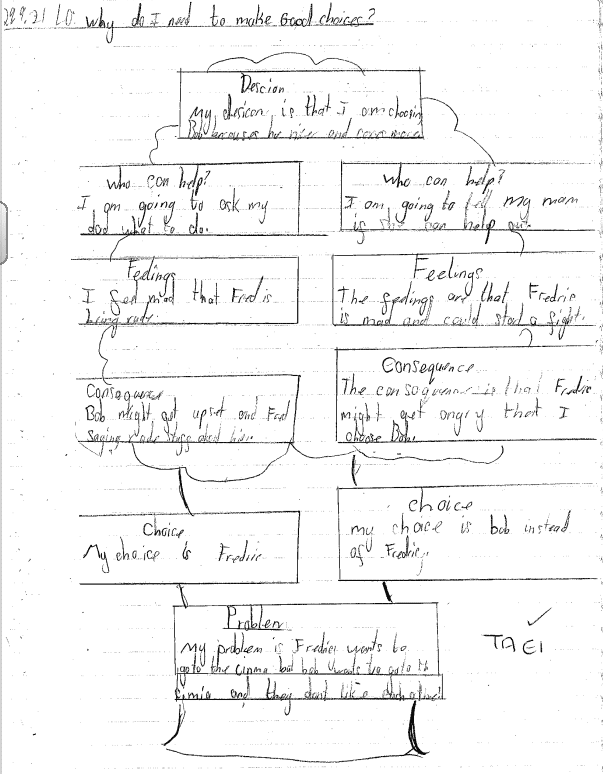 L.O. Why do I need to make Good choices?
Descion
My desicon is that I am choosing
Bob because he nicer and cares more
who can help?
I am going to ask my
dad what to do.
who can help?
I am going to tell my mam
if she can help out.
Feelings
I feel mad that Fred is
being rude.
Feelings
The feelings are that Fredric
is mad and could start a fight.
Consequence
Bob might get upset and Fred
saying rude stuff about him.
Consequence
The consequence is that Fredric
might get angry that I
choose Bob.
Choice
My choice is Fredric
choice
my choice is bob instead
of Fredric.
Problem
My problem is Fredric wants to
go to the but bob wants to go to th
and they dont like each other
TA E1